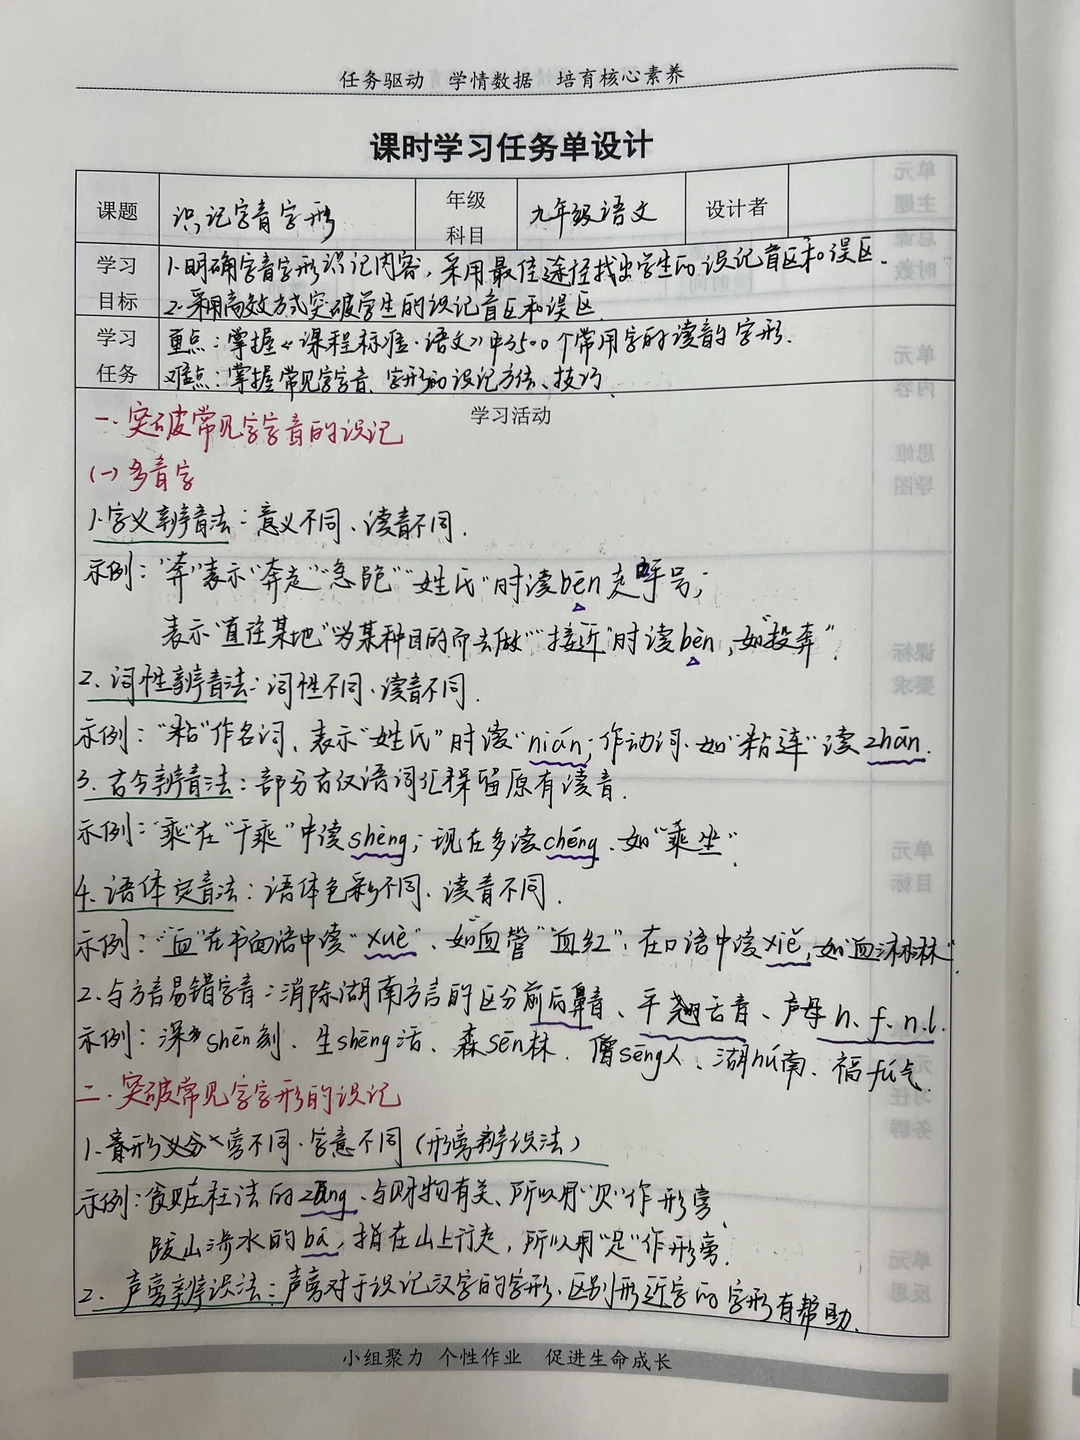 任务驱动 学情数据 培育核心素养
课时学习任务单设计
课题 识记字音字形 年级科目 九年级语文 设计者
学习目标 1.明确字音字形识记内容,采用最佳途径找出学生的识记盲区和误区.
2.采用高效方式突破学生的识记盲区和误区.
学习任务 重点:掌握《课程标准·语文》中3500个常用字的读音的字形.
难点:掌握常见字字音、字形的识记方法、技巧.
学习活动
一.突破常见字字音的识记
(一)多音字
1.字义辨音法:意义不同、读音不同.
示例:"奔"表示"奔走""急跑""姓氏"时读bēn 号;
表示"直往某地""为某种目的而去做""接近"时读bèn,如"投奔".
2.词性辨音法:词性不同、读音不同.
示例:"粘"作名词、表示"姓氏"时读"nián;作动词.如"粘连"读zhān.
3.古今辨音法:部分古汉语词汇保留原有读音.
示例:"乘"在"千乘"中读shèng;现在多读chéng、如"乘坐".
4.语体定音法:语体色彩不同、读音不同.
示例:"血"在书面语中读"xuè"、如"血管""血红";在口语中读xiě,如"血淋淋".
2.与方言易错字音:消除湖南方言的区分前后鼻音、平翘舌音、声母h、f、n、l.
示例:深shēn刻、生shēng活、森sēn林、僧sēng人、湖hú南、福fú气.
二.突破常见字字形的识记
1.旁不同.字意不同(形旁辨识法)
示例:贪赃枉法的zāng、与财物有关、所以用"贝"作形旁、
跋山涉水的bá,指在山上行走,所以用"足"作形旁.
2.声旁辨识法:声旁对于识记汉字的字形、区别形近字的字形有帮助.
小组聚力 个性作业 促进生命成长